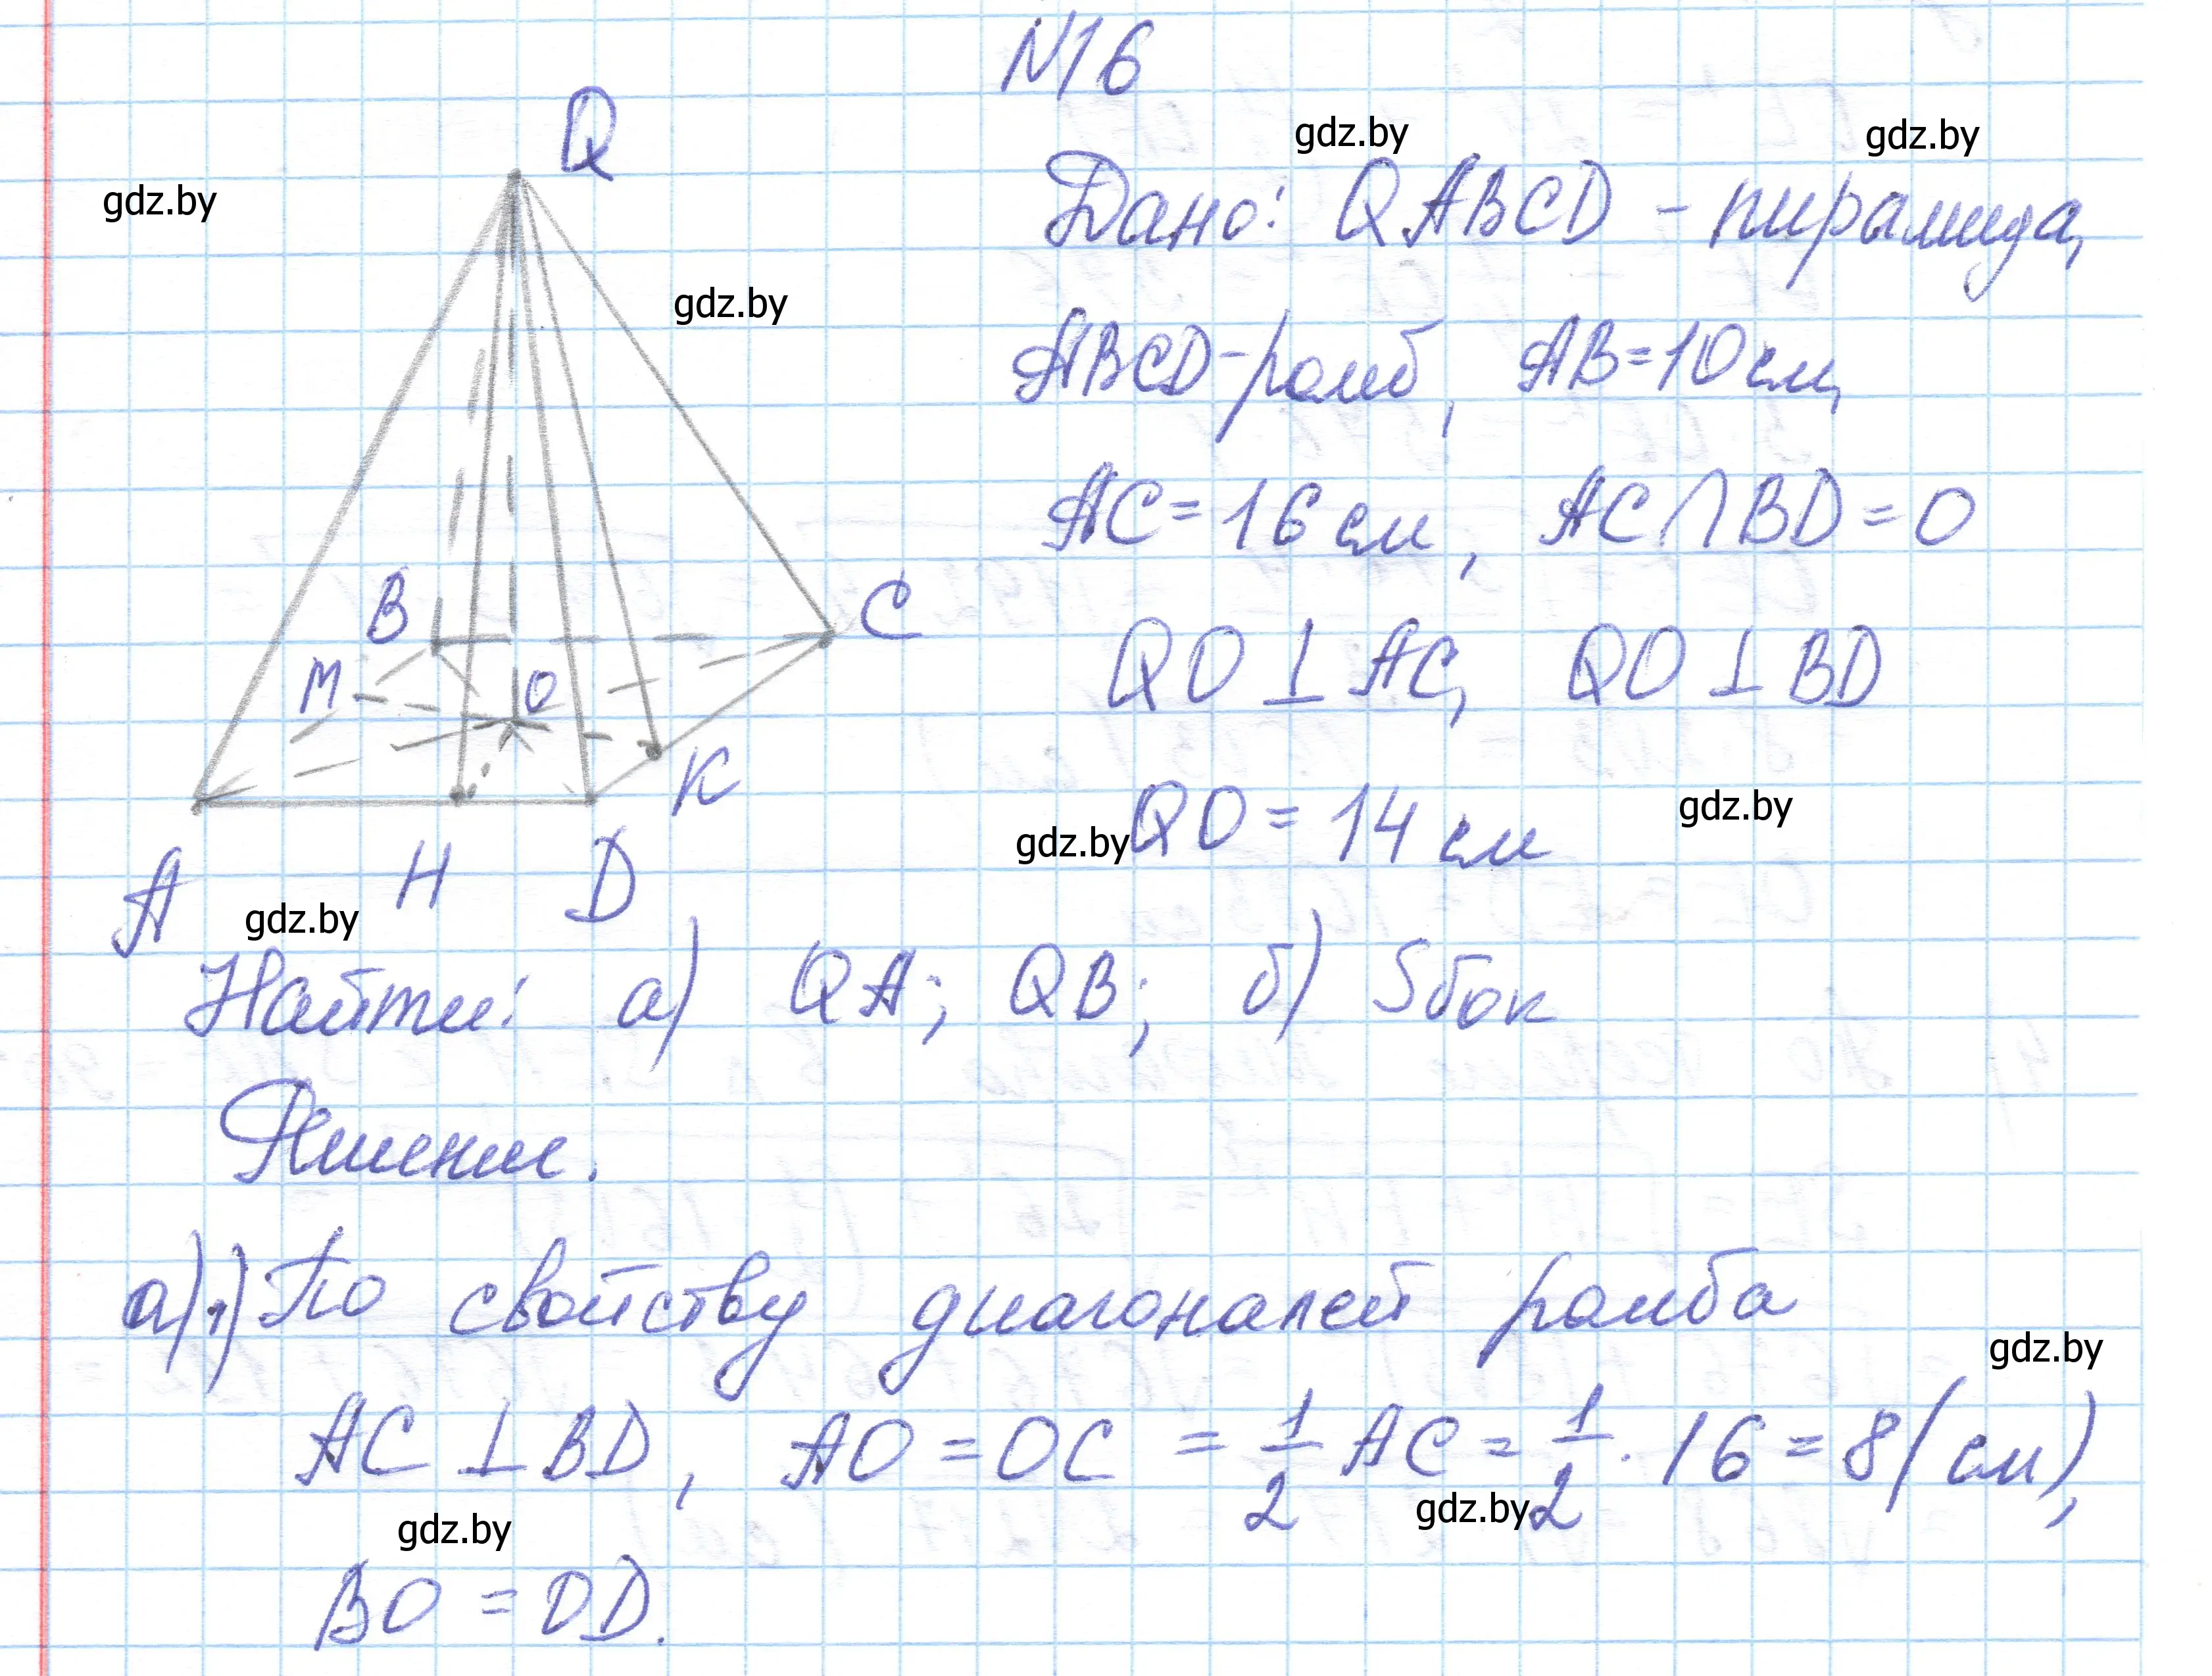 N16
gdz.by gdz.by
Q
gdz.by
Дано: QABCD - пирамида,
gdz.by
ABCD - ромб, AB = 10 см,
AC = 16 см, AC ∩ BD = O
B C
QO ⊥ AC, QO ⊥ BD
M O
K
gdz.by QO = 14 см gdz.by
A H D
gdz.by
Найти: а) QA; QB; б) Sбок
Решение.
а) 1) По свойству диагоналей ромба
gdz.by
AC ⊥ BD, AO = OC = 1/2 AC = 1/2 · 16 = 8 (см),
gdz.by gdz.by
BO = OD.